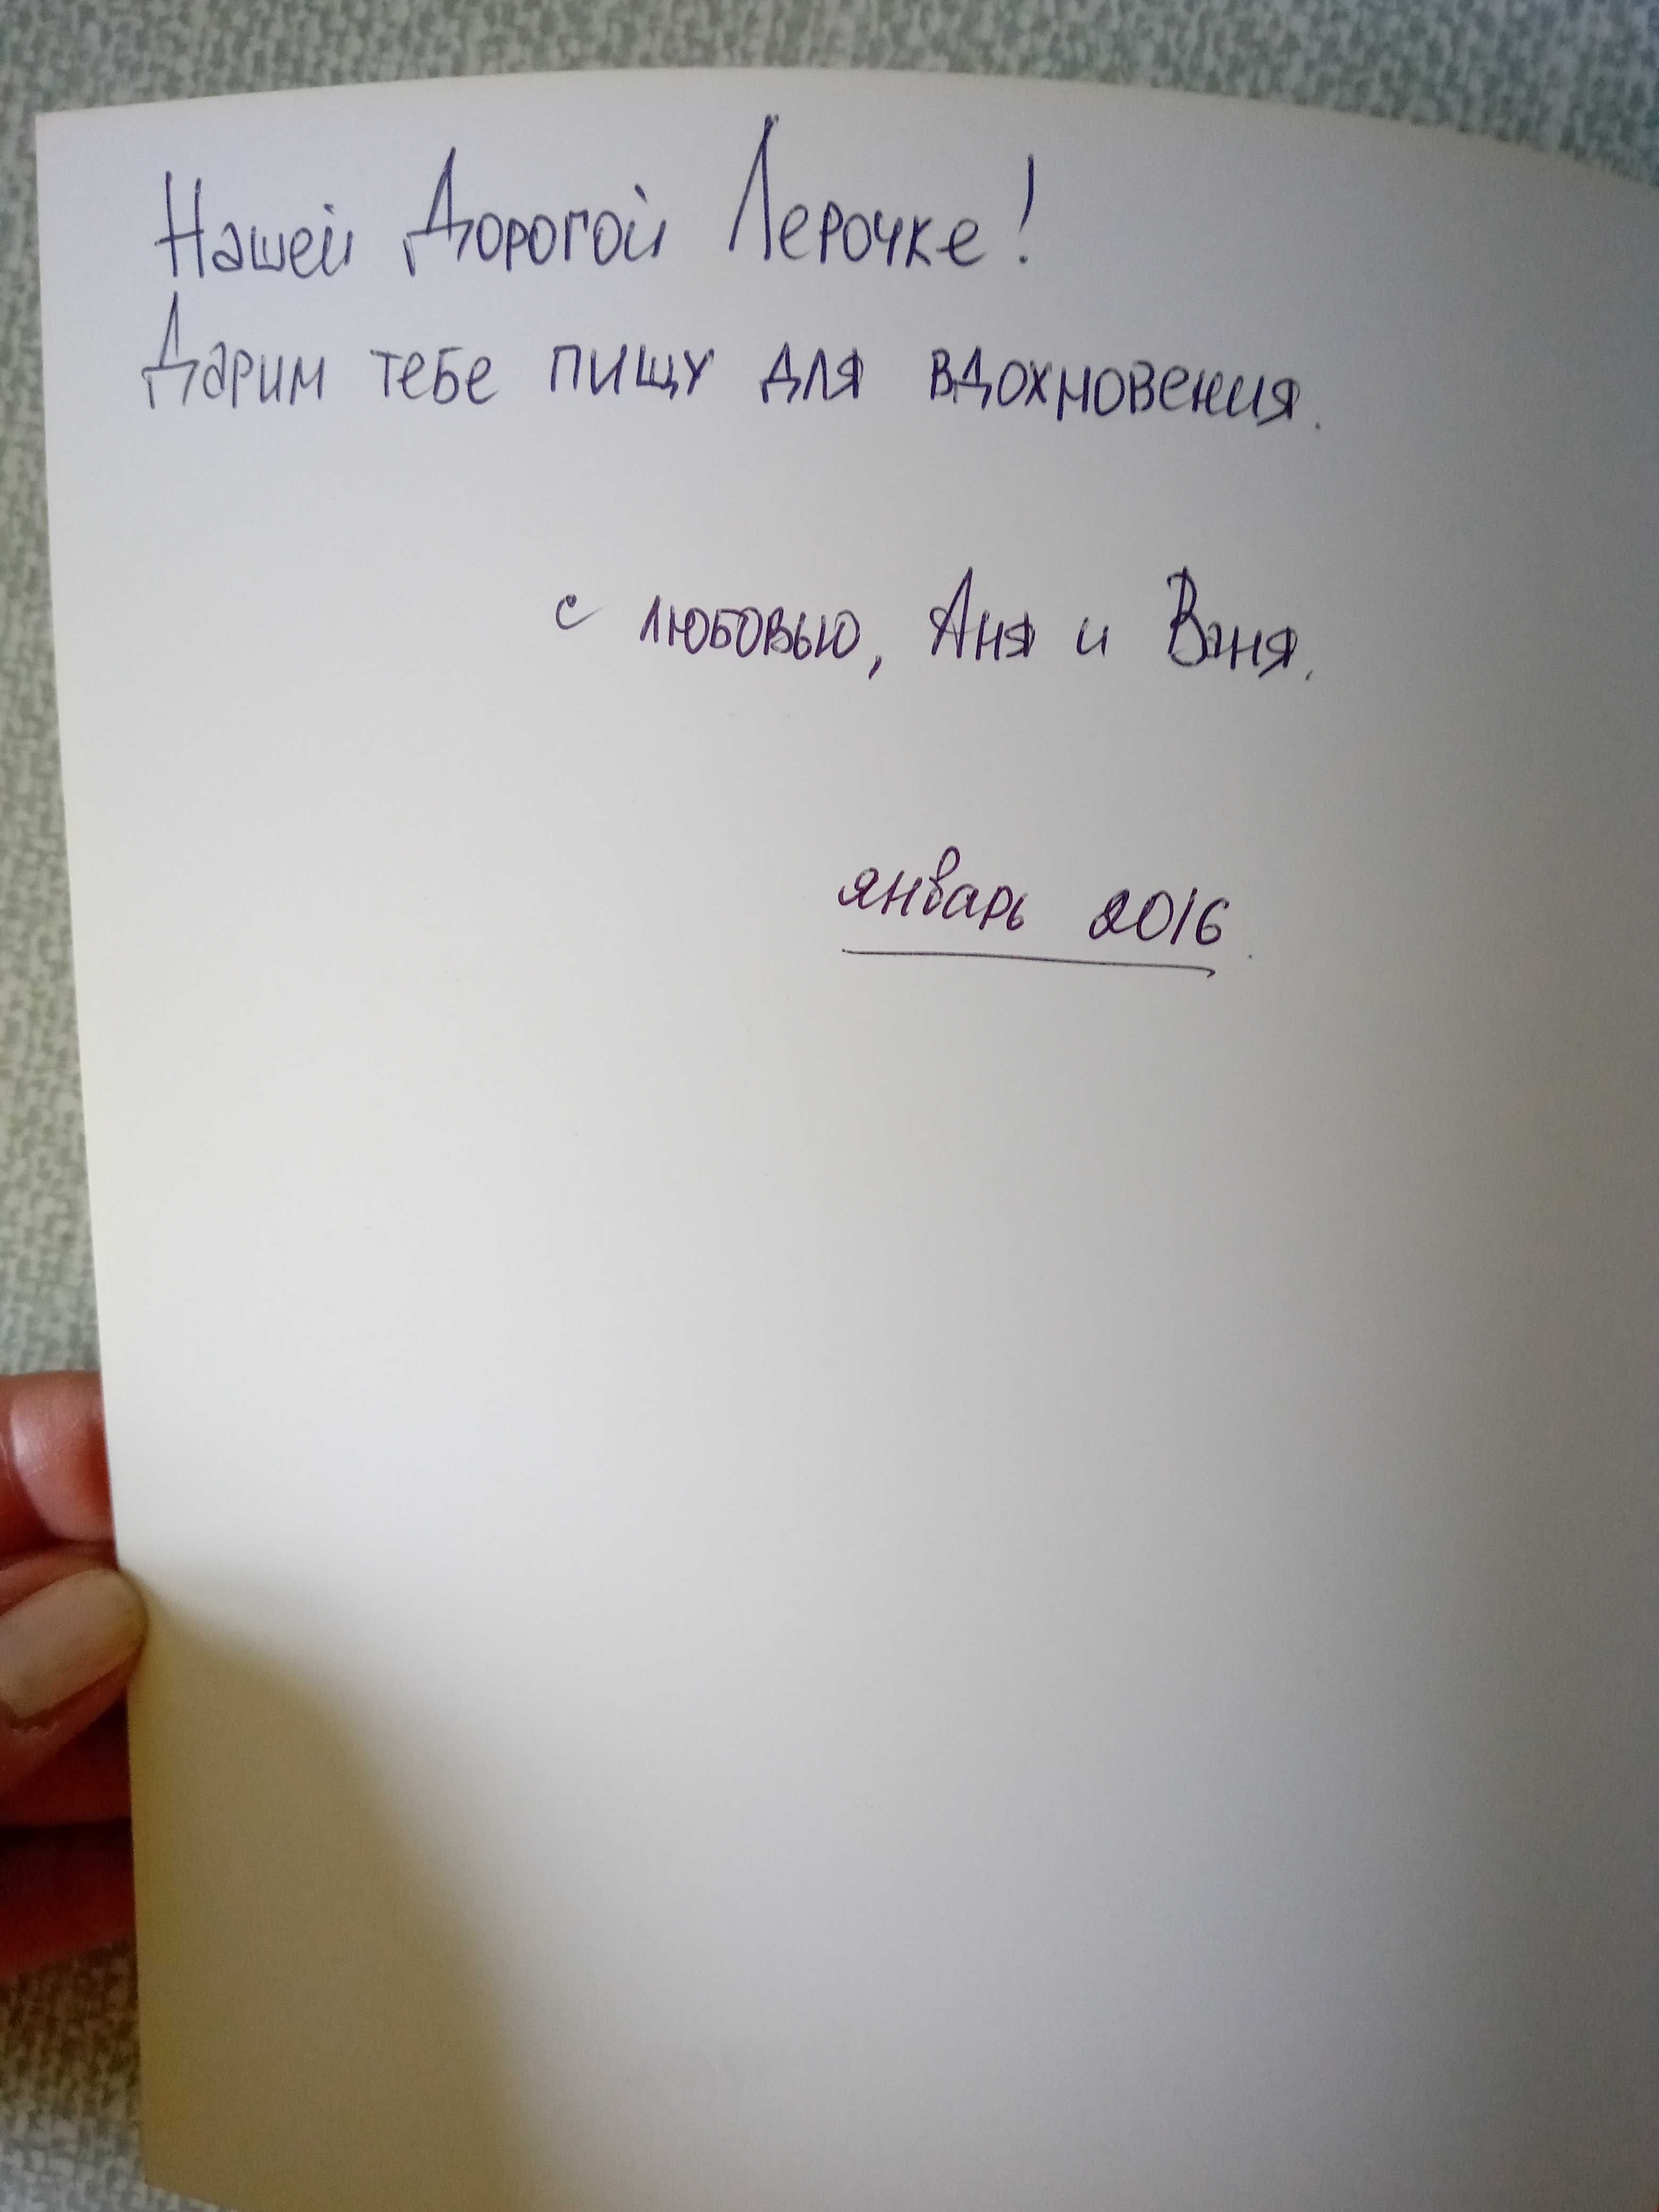 Нашей Дорогой Лерочке!
Дарим тебе пищу для вдохновения.
с любовью, Аня и Ваня.
январь 2016.